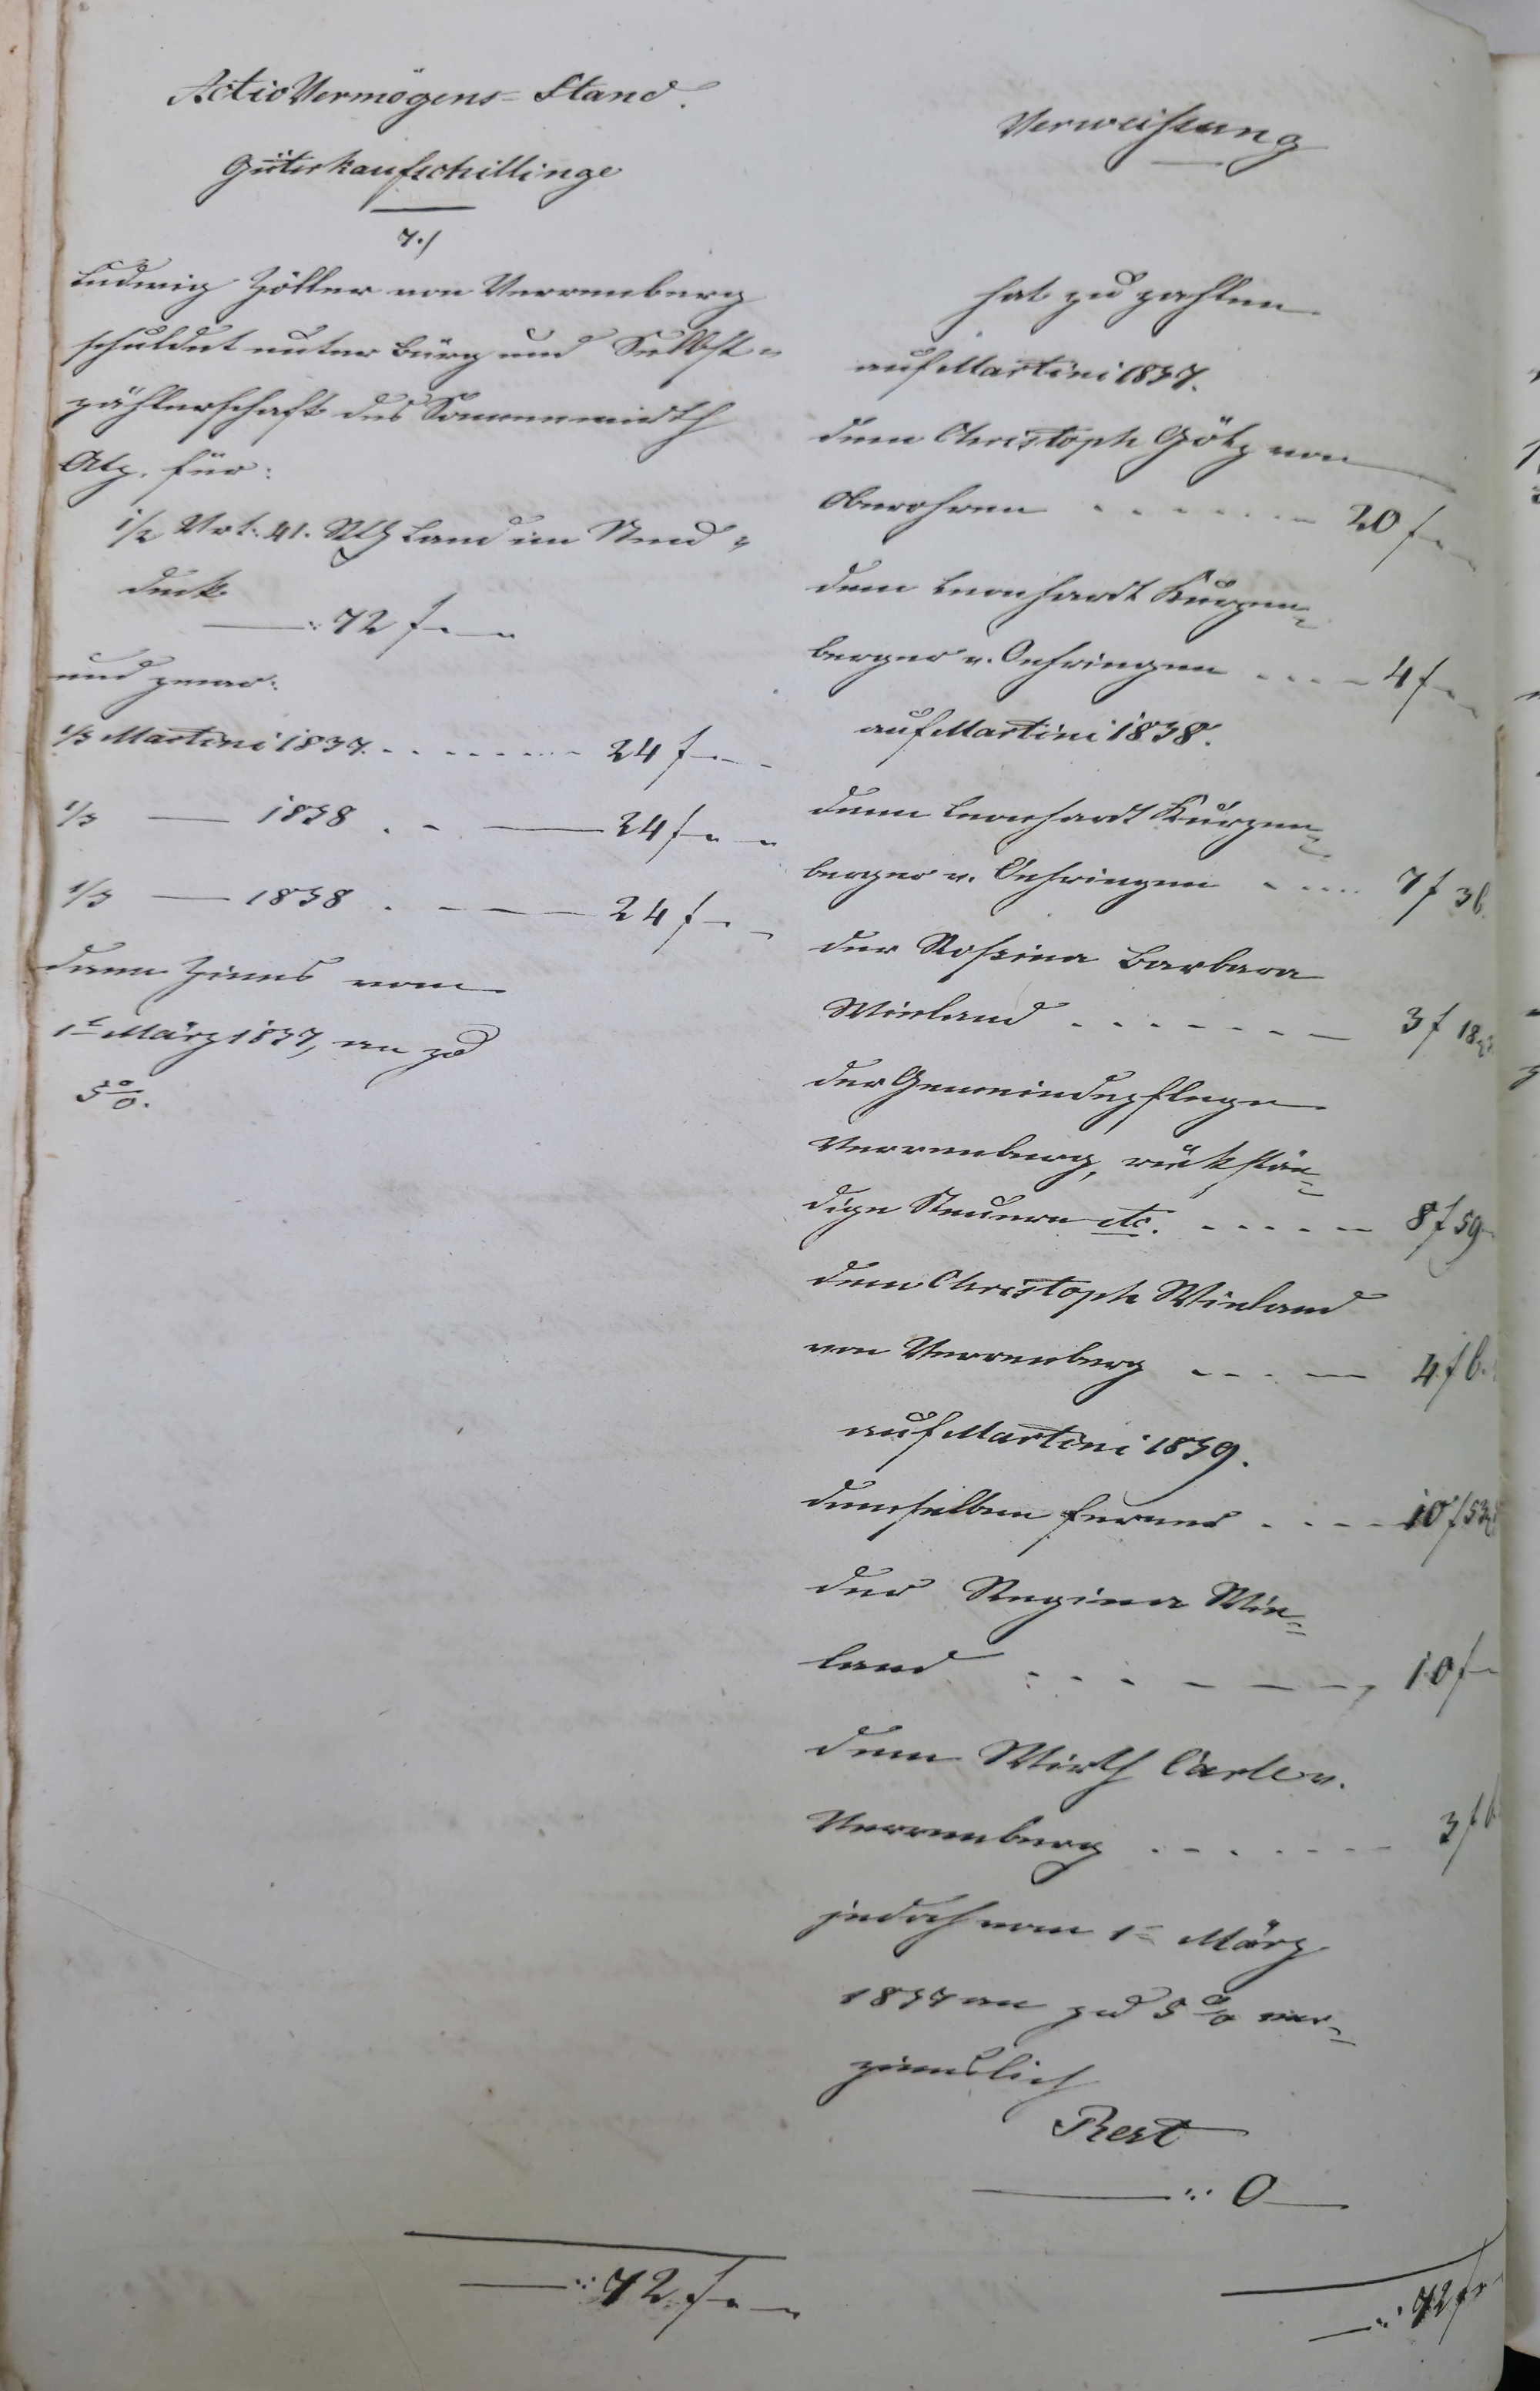 ActivVermögens-Stand.
Güterkaufschillinge
7./
Ludwig Zöller von Verrenberg
schuldet unter Bürg und Selbst-
zählerschaft des Sonnenwirth
für:
1/2 Vrt. 41. Rth Land im
72 f
und zwar:
1/3 Martini 1837. 24 f
1/3 — 1838 . 24 f
1/3 — 1838 . 24 f
dann Zinns vom
1t März 1837, an zu
5 %.
Verweisung
hat zu zahlen
auf Martini 1837.
dem Christoph Götz von
Oberohrn 20 f
dem Leonhardt Kurzen-
berger v. Oehringen 4 f
auf Martini 1838.
dem Leonhardt Kurzen-
berger v. Oehringen 7 f 36.
der Rosina Barbara
Wieland 3 f 18
der Gemeindepflege
Verrenberg, rückstän-
dige Steuern etc. 8 f 59
dem Christoph Wieland
von Verrenberg 4 f
auf Martini 1839.
demselben ferner 10 f 53
der Regina Wie-
land 10 f
dem Wirth Carle v.
Verrenberg 3 f
jedoch vom 1t März
1837 an zu 5 % ver-
zinnslich
Rest
0
72 f
72 f